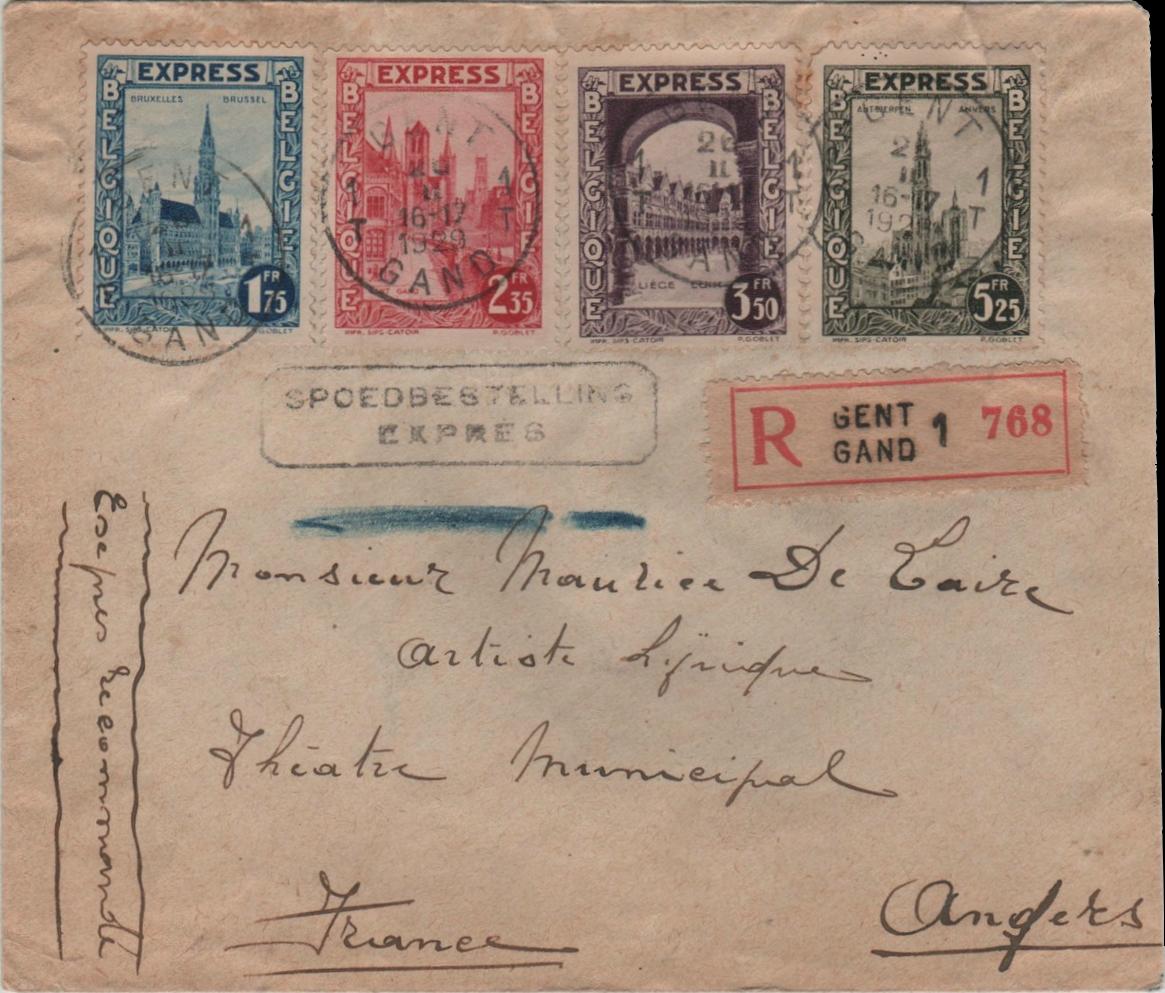 EXPRESS
BELGIQUE
BELGIE
BRUXELLES BRUSSEL
1FR75
IMP. SIPS-CATOIR P.GOBLET
EXPRESS
BELGIQUE
BELGIE
2FR35
IMPR. SIPS-CATOIR P.GOBLET
EXPRESS
BELGIQUE
BELGIE
LIÈGE LUIK
3FR50
IMPR. SIPS-CATOIR P.GOBLET
EXPRESS
BELGIQUE
BELGIE
ANTWERPEN ANVERS
5FR25
IMPR. SIPS-CATOIR P.GOBLET
GENT
1 1
T T
16-17
1929
GAND
SPOEDBESTELLING
EXPRES
R GENT GAND 1 768
Monsieur Maurice De
Artiste Lÿrique
Théatre Municipal
Angers
France
Exepres Recommandé